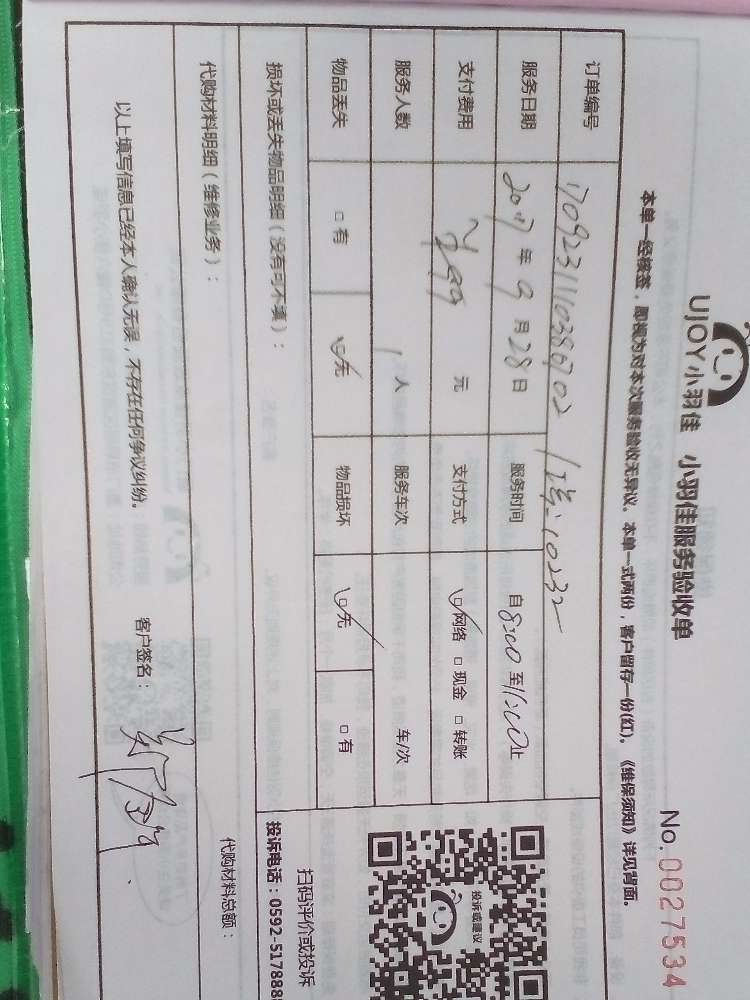 UJOY小羽佳 小羽佳服务验收单 No.0027534
本单一经核签，即视为对本次服务验收无异议。本单一式两份，客户留存一份(红)。《维保须知》详见背面。
订单编号 1709231110386702
服务日期 2017年9月28日 服务时间 自8:00至11:00止
支付费用 元 支付方式 □网络 □现金 □转账
服务人数 1人 服务车次 车/次
物品丢失 □有 □无 物品损坏 □无 □有
损坏或丢失物品明细（没有可不填）：
代购材料明细（维修业务）： 代购材料总额：
以上填写信息已经本人确认无误，不存在任何争议纠纷。 客户签名：
投诉或建议
扫码评价或投诉
投诉电话：0592-517888